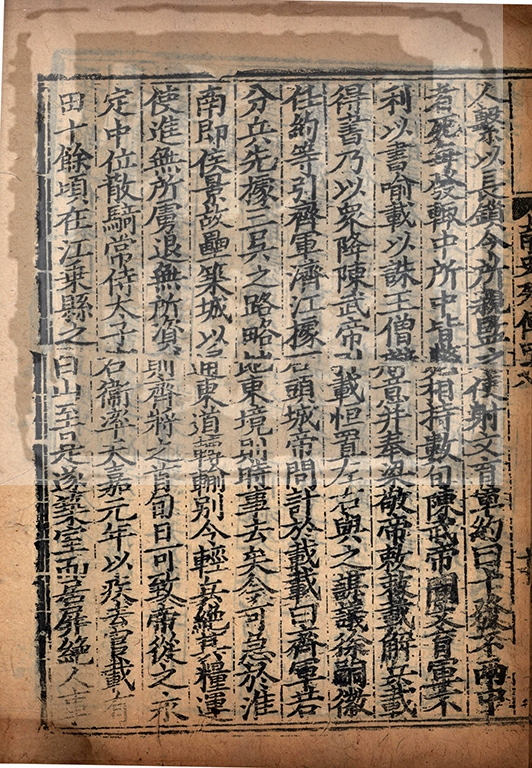 人繫以長鎖令所親監之使射文育軍約曰十發不兩中
者死每發輙中所中皆斃相持數旬陳武帝聞文育軍不
利以書喻載以誅王僧辯意并奉梁敬帝敕敕載解兵載
得書乃以衆降陳武帝引載恒置左右與之謀議徐嗣徽
任約等引齊軍濟江據石頭城帝問計於載載曰齊軍若
分兵先據三吳之路略地東境則時事去矣今可急於淮
南即侯景故壘築城以通東道轉輸別令輕兵絶其糧運
使進無所虜退無所資則齊將之首旬日可致帝從之永
定中位散騎常侍太子右衛率天嘉元年以疾去官載有
田十餘頃在江乘縣之白山至是遂築室而居屏絶人事